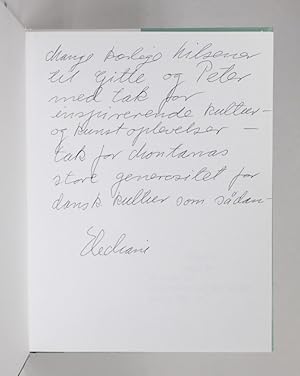 Mange kærlige hilsener
til Gitte og Peter
med tak for
inspirerende kultur-
og kunstoplevelser –
tak for Montanas
store generøsitet for
dansk kultur som sådan –